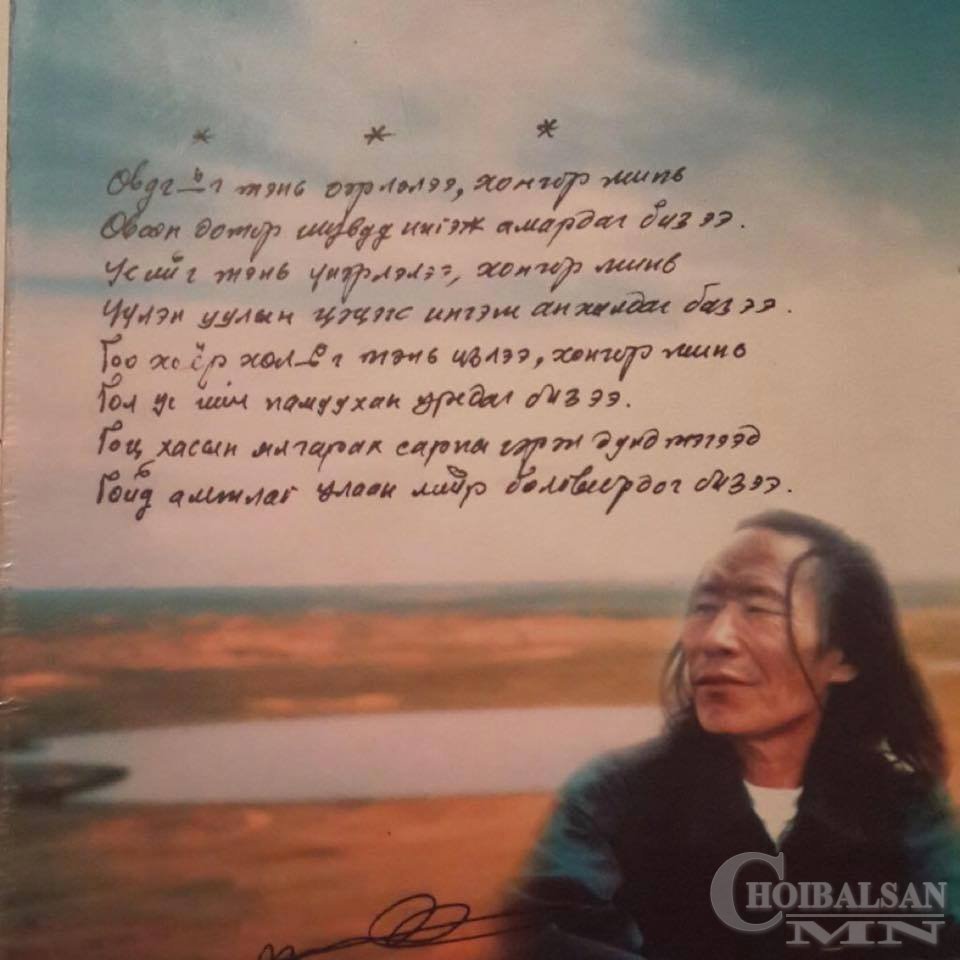 * * *
Өвдгийг тэнь өэрлөлээ, хонгор минь
Өвсөн дотор шувууд ингэж амардаг бизээ.
Үсийг тэнь үнэрлэлээ, хонгор минь
Үүлэн уулын цэцэгс ингэж анхилдаг бизээ.
Гоо хоёр хөлийг тэнь илээ, хонгор минь
Гол ус шиг намуухан урсдаг бизээ.
Гоц хасын ялгарах сарны гэрэл дунд тэгээд
Гойд амтлаг улаан лийр боловсордог бизээ.
CHOIBALSAN
MN